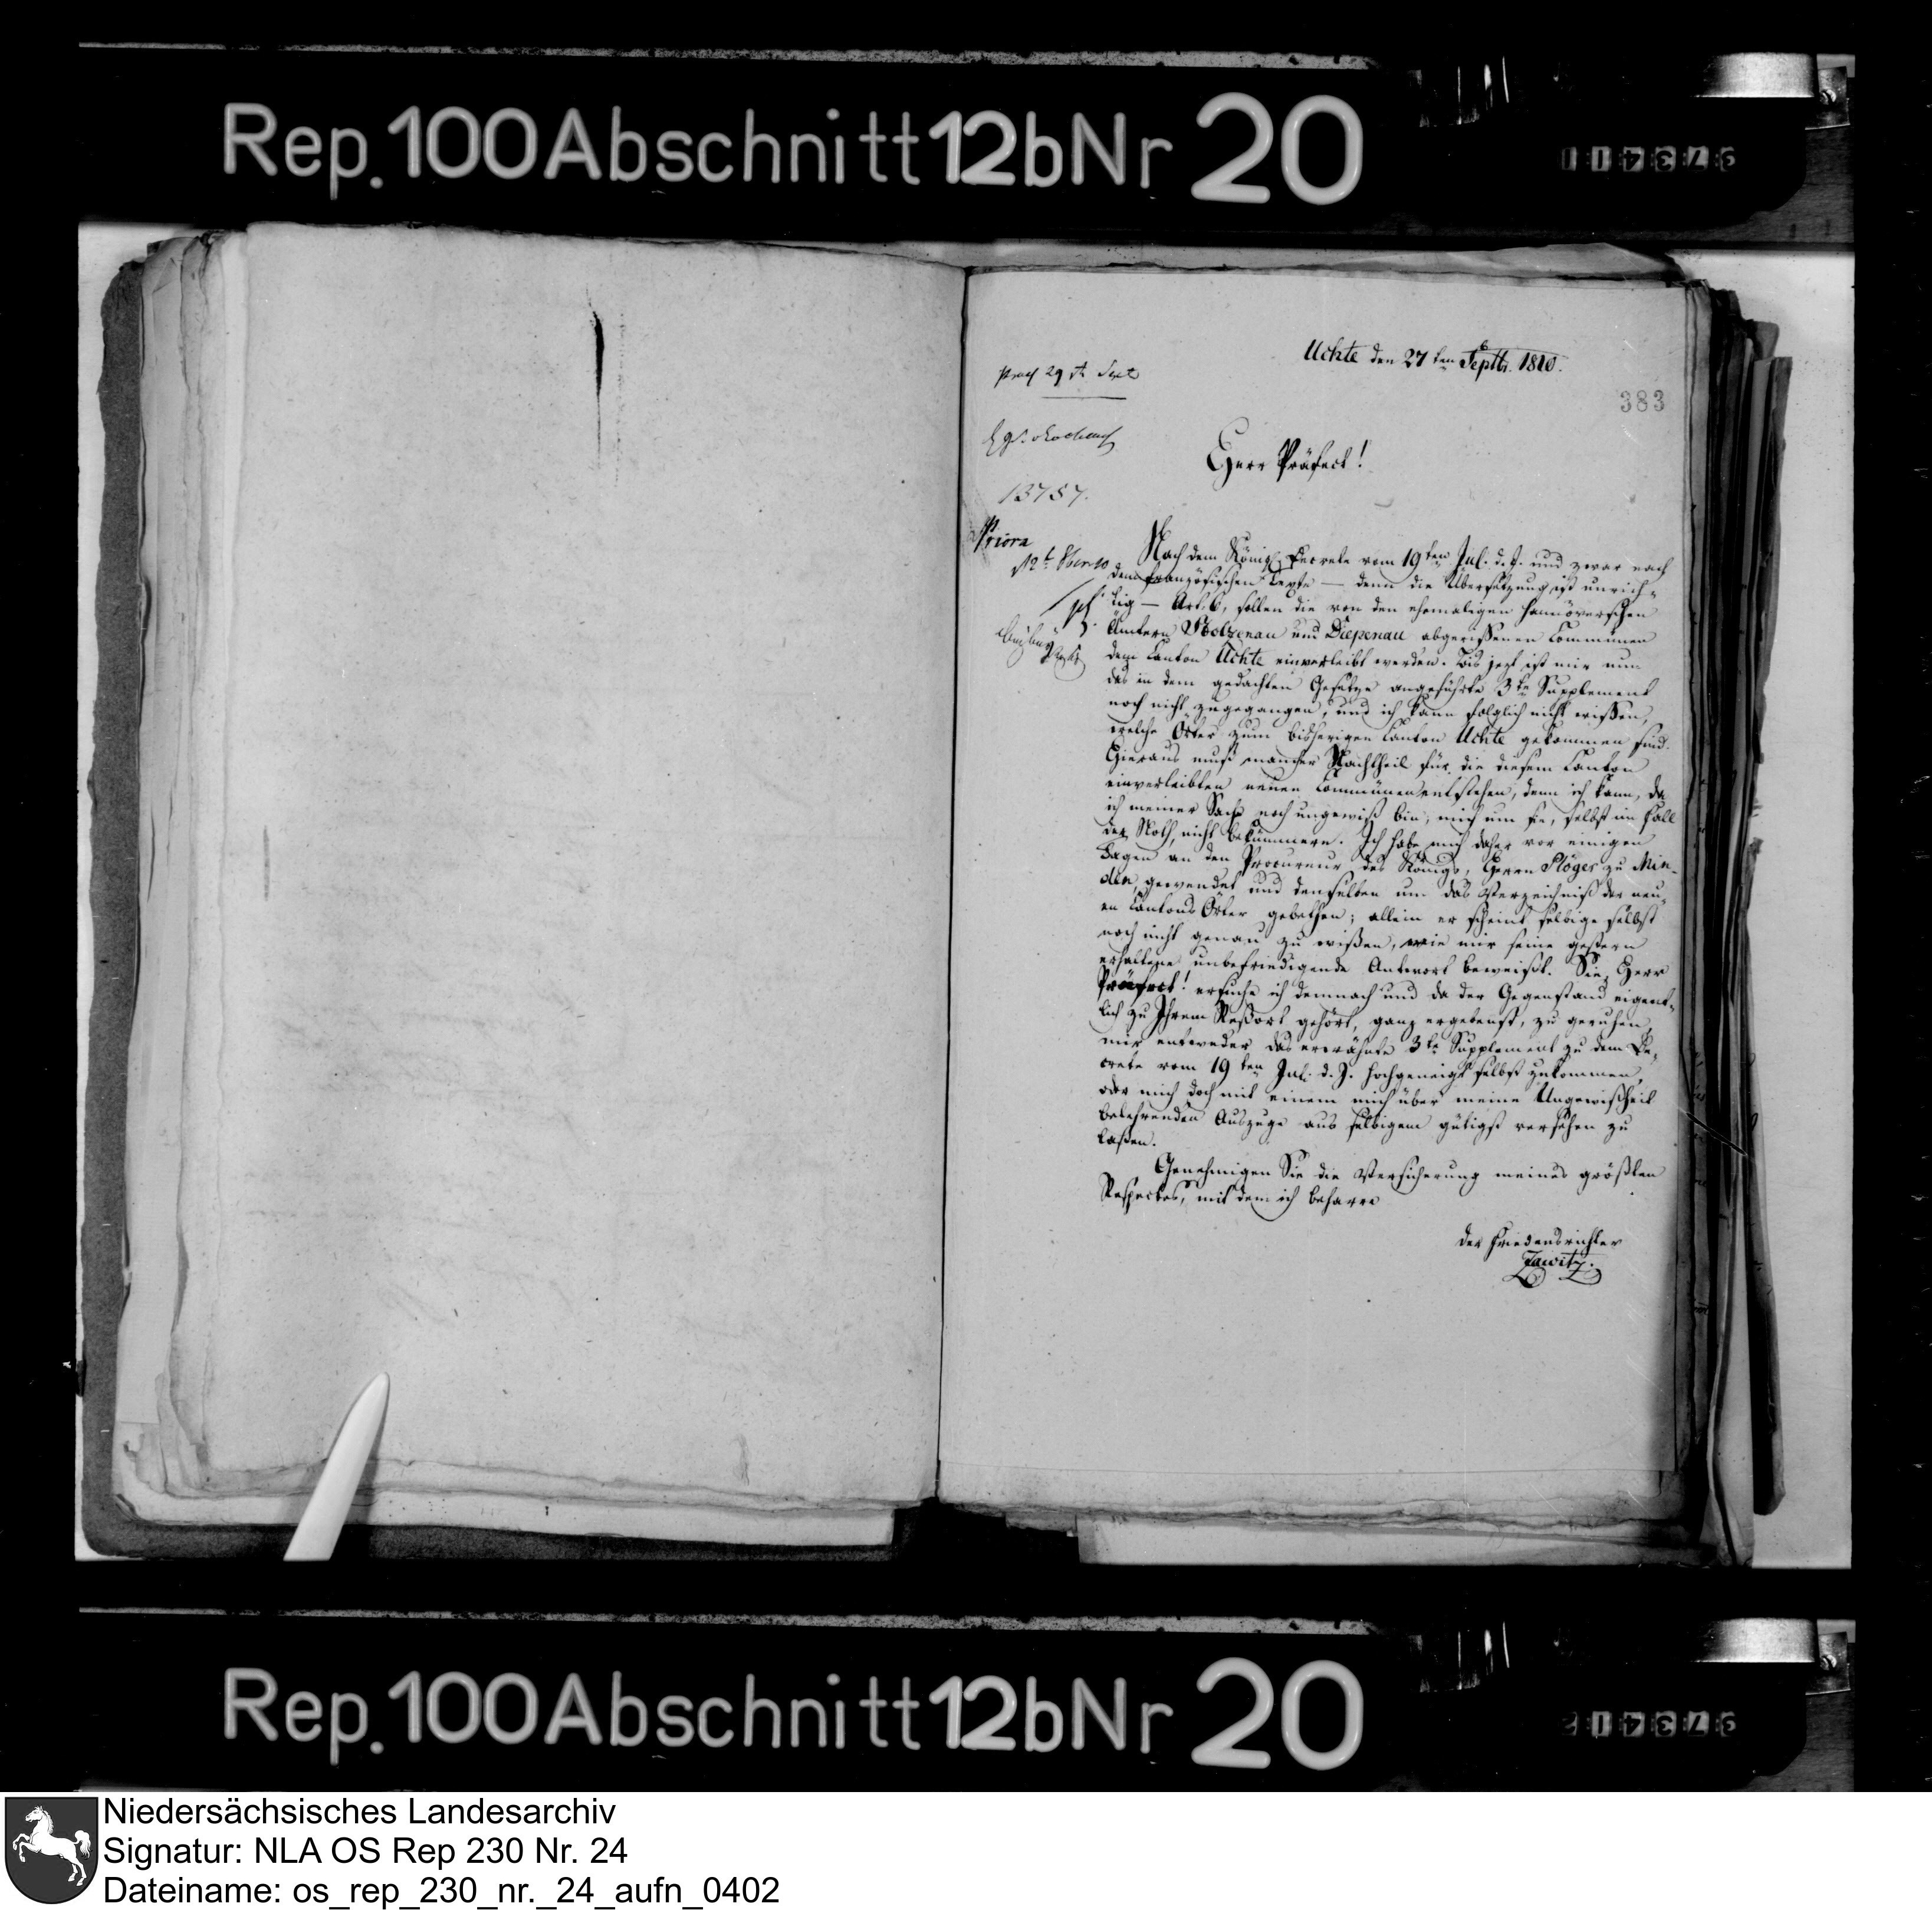 Rep. 100 Abschnitt 12b Nr 20
Uchte den 27ten Septbr. 1810.
383
Herr Präfect!
13757.
Priora
Nach dem Königl. Decrete vom 19ten Jul. d. J. und zwar nach
dem französischen Texte — denn die Übersetzung ist unrich-
tig — Art. 6, sollen die von den ehemaligen hannöverschen
Ämtern Stolzenau und Diepenau abgerissenen Communen
dem Canton Uchte einverleibt werden. Bis jezt ist mir nun
das in dem gedachten Gesetze angeführte 3te Supplement
noch nicht zugegangen, und ich kann folglich nicht wissen,
welche Örter zum bisherigen Canton Uchte gekommen sind.
Hieraus muß mancher Nachtheil für die diesem Canton
einverleibten neuen Communen entstehen, denn ich kann, da
ich meiner Sache noch ungewiß bin, mich um sie, selbst im Fall
der Noth, nicht bekümmern. Ich habe mich daher vor einigen
Tagen an den Procureur des Königs, Herrn Stöger zu Min-
den, gewendet und denselben um das Verzeichniß der neu-
en Cantons Örter gebethen; allein er scheint selbige selbst
noch nicht genau zu wißen, wie mir seine gestern
erhaltene unbefriedigende Antwort beweißt. Sie, Herr
Präfect! ersuche ich demnach und da der Gegenstand eigent-
lich zu Ihrem Reßort gehört, ganz ergebenst, zu geruhen,
mir entweder das erwähnte 3te Supplement zu dem De-
crete vom 19ten Jul. d. J. hochgeneigt selbst zukommen,
oder mich doch mit einem mich über meine Ungewißheit
belehrenden Auszuge aus selbigem gütigst versehen zu
laßen.
Genehmigen Sie die Versicherung meines größten
Respectes, mit dem ich beharre
der Friedensrichter
Zawitz.
Rep. 100 Abschnitt 12b Nr 20
Niedersächsisches Landesarchiv
Signatur: NLA OS Rep 230 Nr. 24
Dateiname: os_rep_230_nr._24_aufn_0402